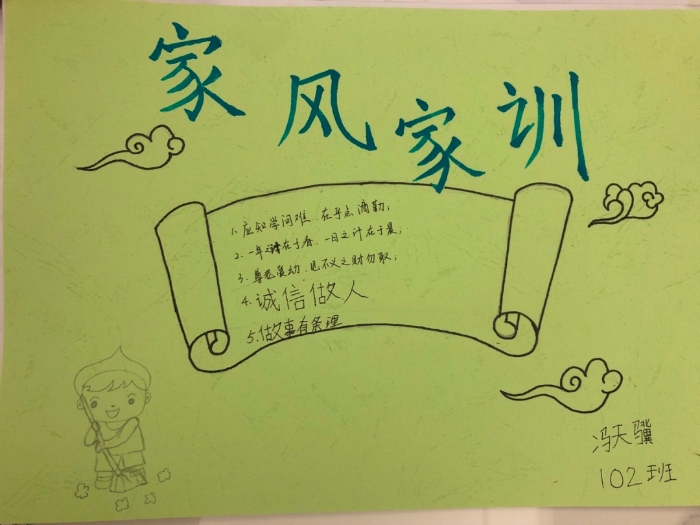 家风家训
1. 应知学问难,在乎点滴勤;
2. 一年之计在于春,一日之计在于晨;
3. 尊老爱幼,见不义之财勿取;
4. 诚信做人
5. 做事有条理
冯天骥
102班